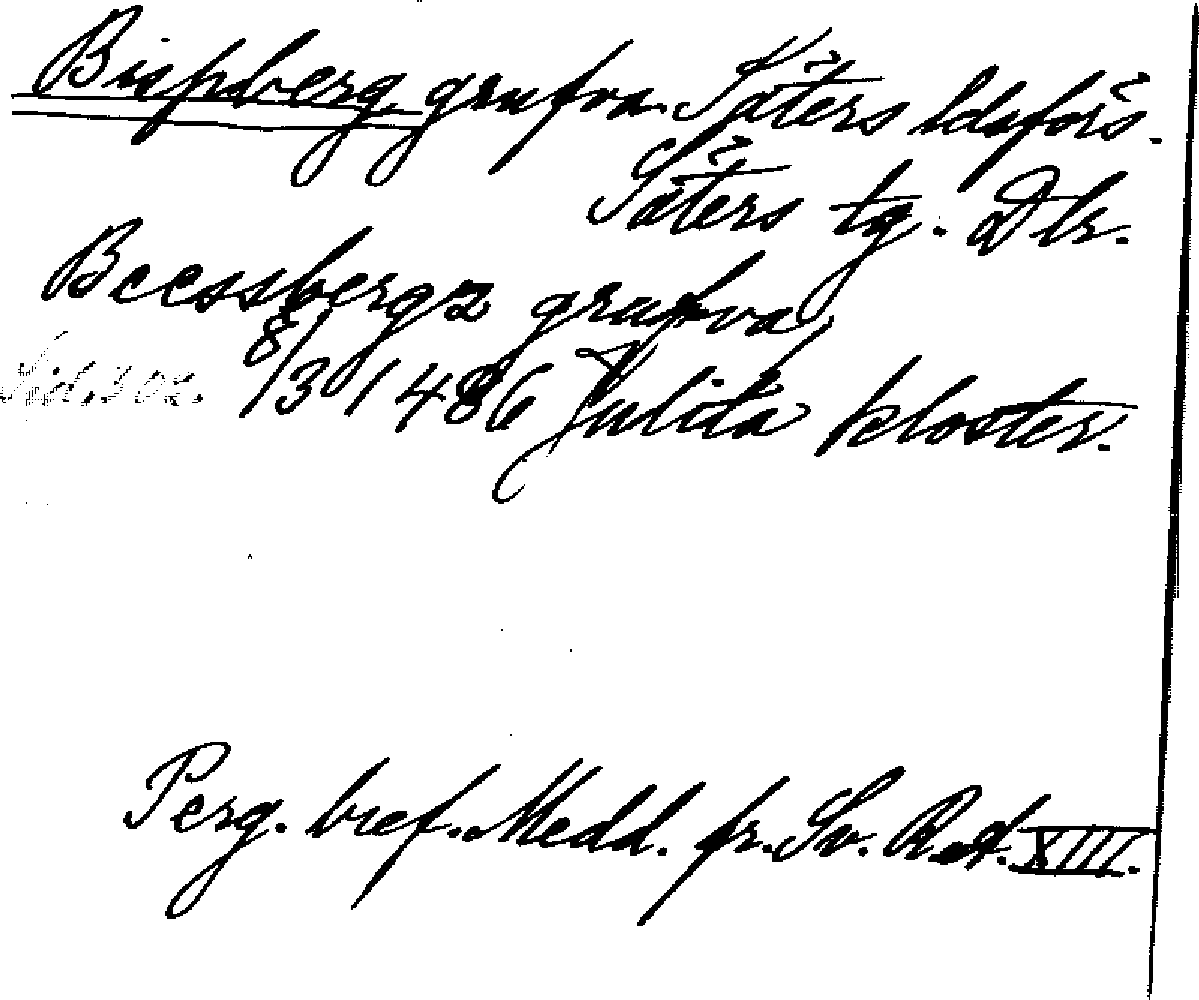 Bispberg grufva. Säters ldsförs.
Säters tg. Dlr.
Beessbergz grufva
Sid. 302. 8/3 1486 Julita kloster.
Perg. bref. Medd. fr. Sv. R. A. XIII.